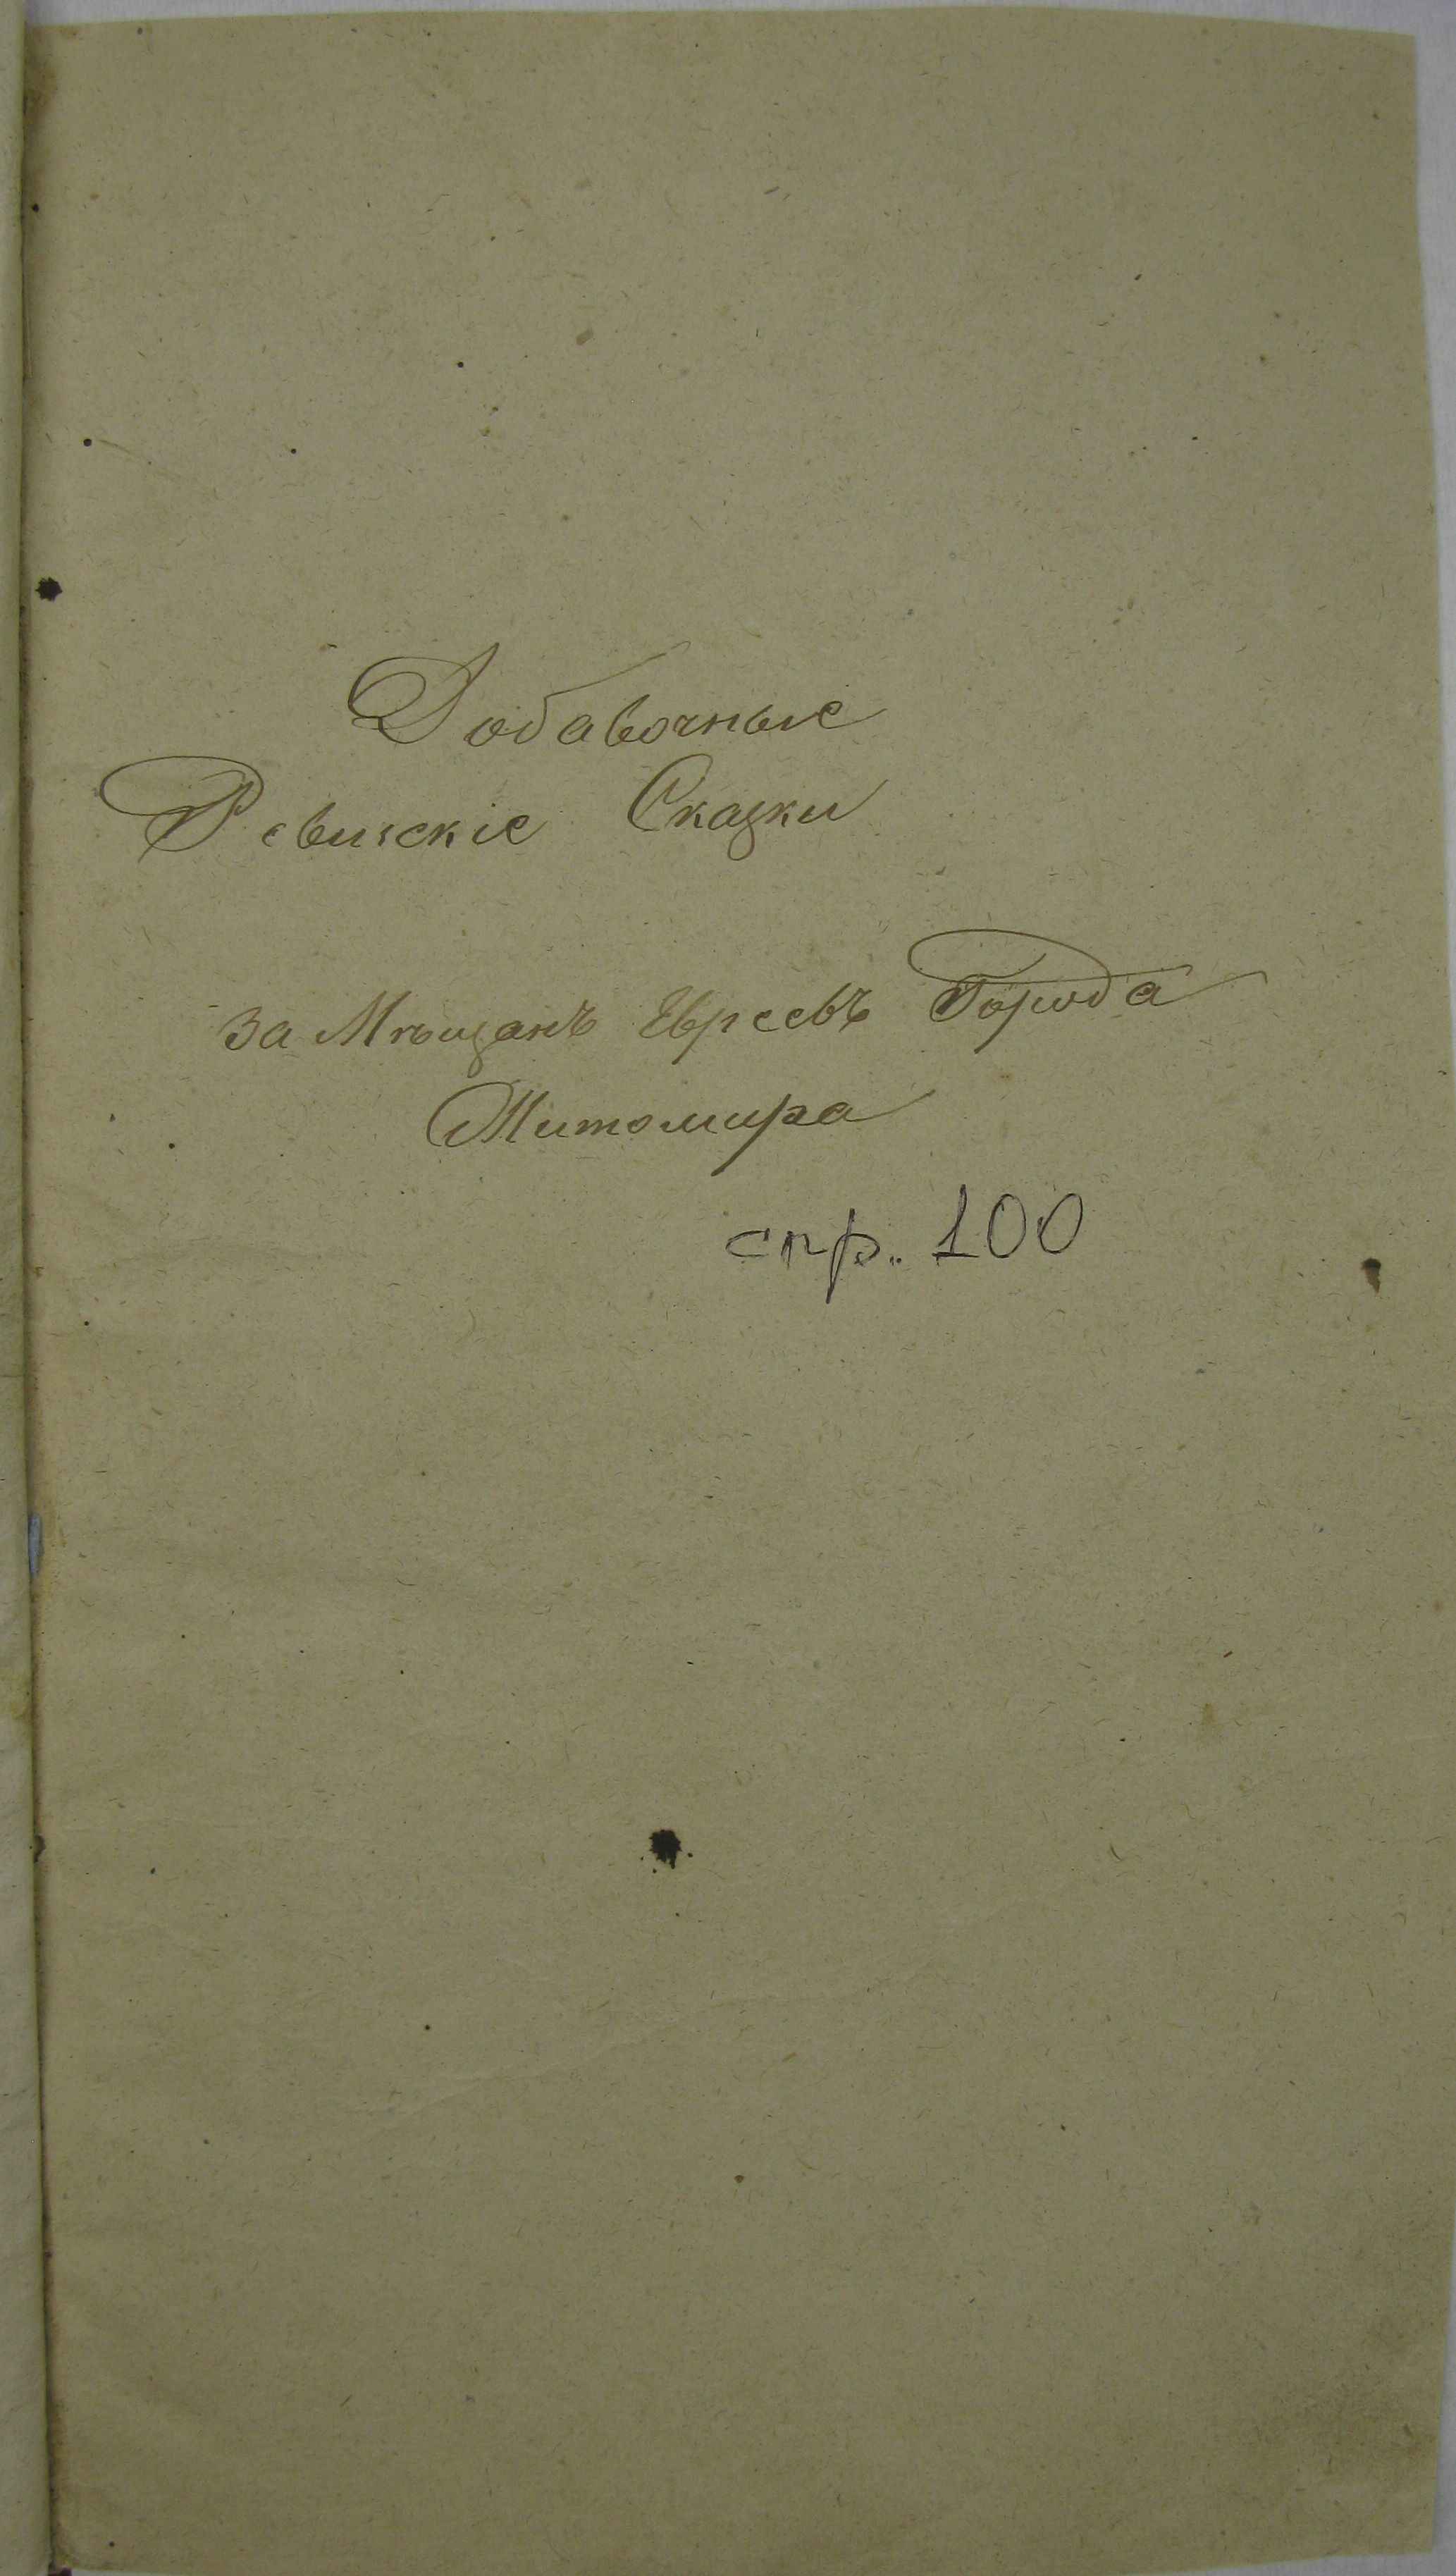 Добавочные
Ревизскіе Сказки
за Мѣщанъ Евреевъ Города
Житомира
спр. 100